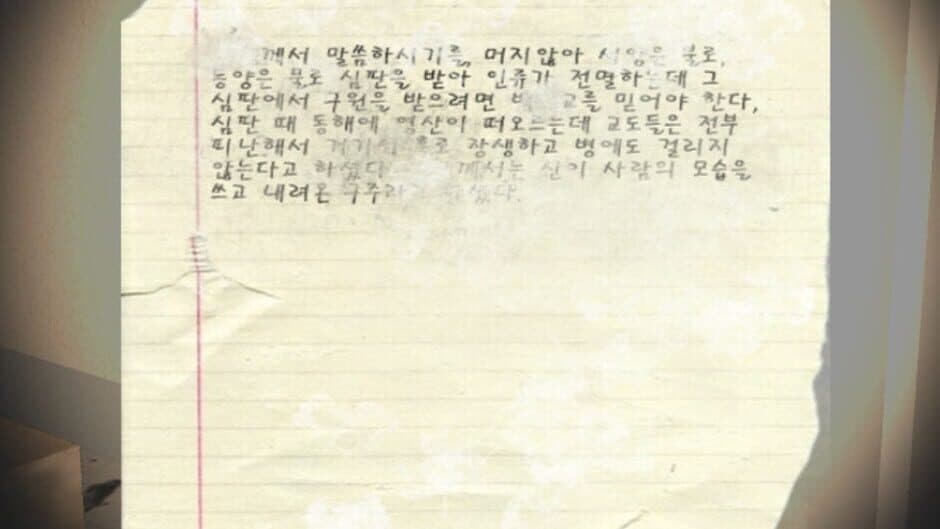 께서 말씀하시기를, 머지않아 서양은 불로,
심판을 받아 인류가 전멸하는데 그
심판에서 구원을 받으려면 교를 믿어야 한다,
심판 때 동해에 영산이 떠오르는데 교도들은 전부
피난해서 장생하고 병에도 걸리지
않는다고 하셨다 께서는 신이 사람의 모습을
쓰고 내려온 구주라고 하셨다.